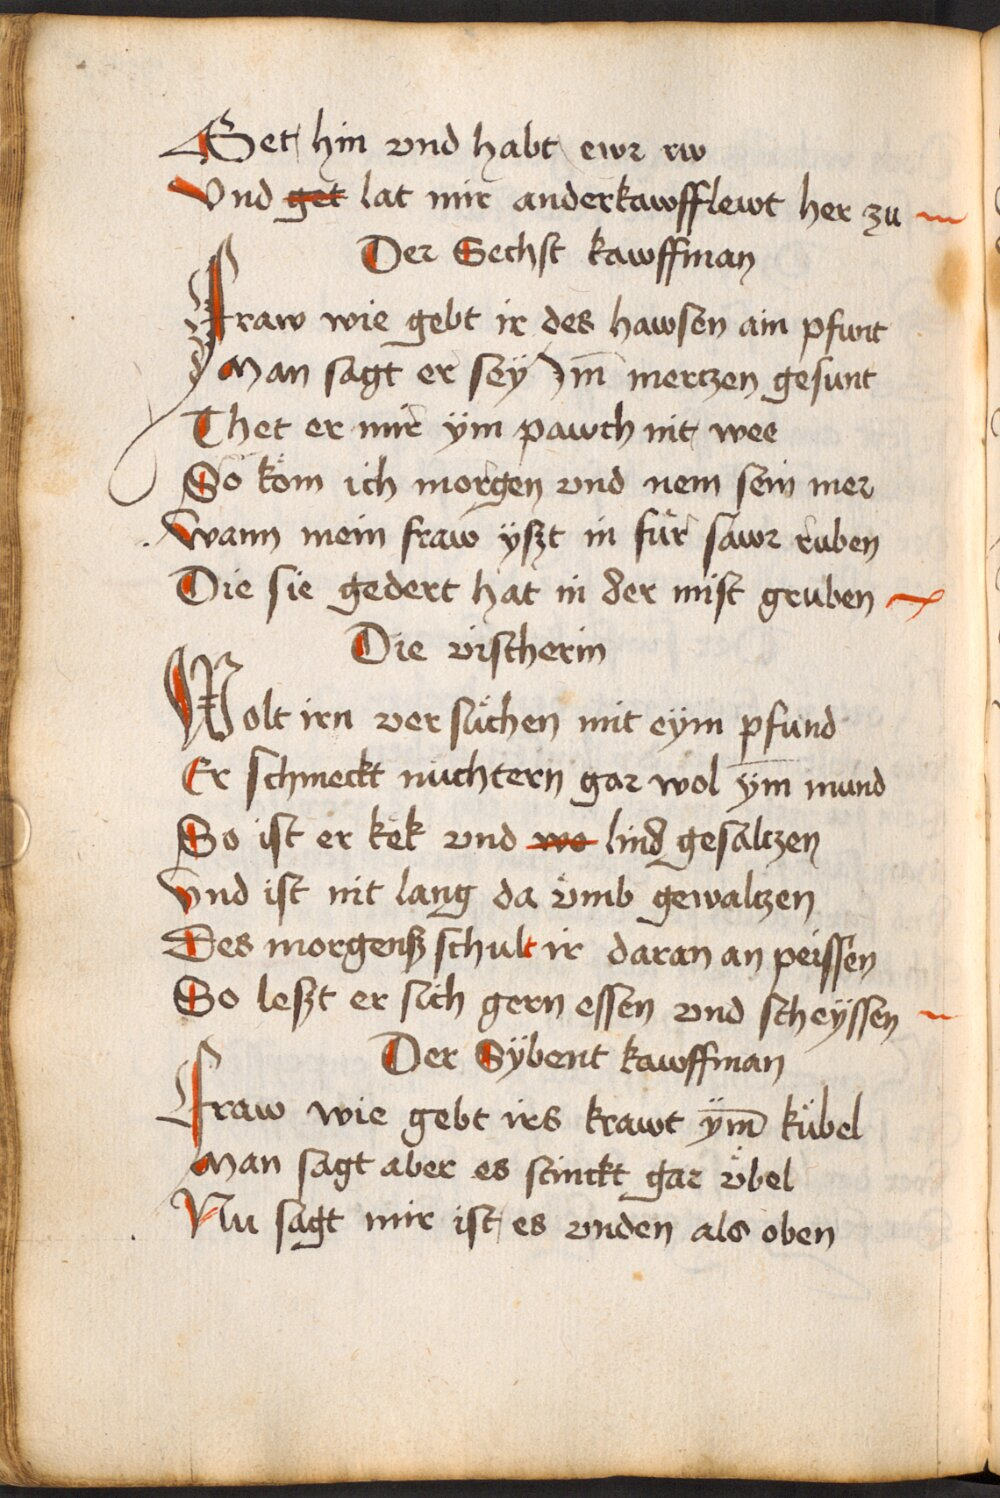 Get hin vnd habt ewr rw
Vnd get lat mir anderkawfflewt her zu
Der Sechst kawffman
Fraw wie gebt ir des hawsen ain pfunt
Man sagt er seÿ Im̄ mertzen gesunt
Thet er mir ÿm pawch nit wee
So kom ich morgen vnd nem sein mer
Wann mein fraw ÿszt in für sawr ruben
Die sie gedert hat in der mist gruben
Die vischerin
Wolt irn versuͦchen mit eÿm pfund
Er schmeckt nüchtern gar wol ÿm̄ mund
So ist er kek vnd wo lind gesaltzen
Vnd ist nit lang da vmb gewaltzen
Des morgensz schult ir daran an peissen
So leszt er sich gern essen vnd scheÿssen
Der Sÿbent kawffman
Fraw wie gebt irs krawt ÿm̄ kübel
Man sagt aber es stinckt gar v̈bel
Nu sagt mir ist es vnden als oben